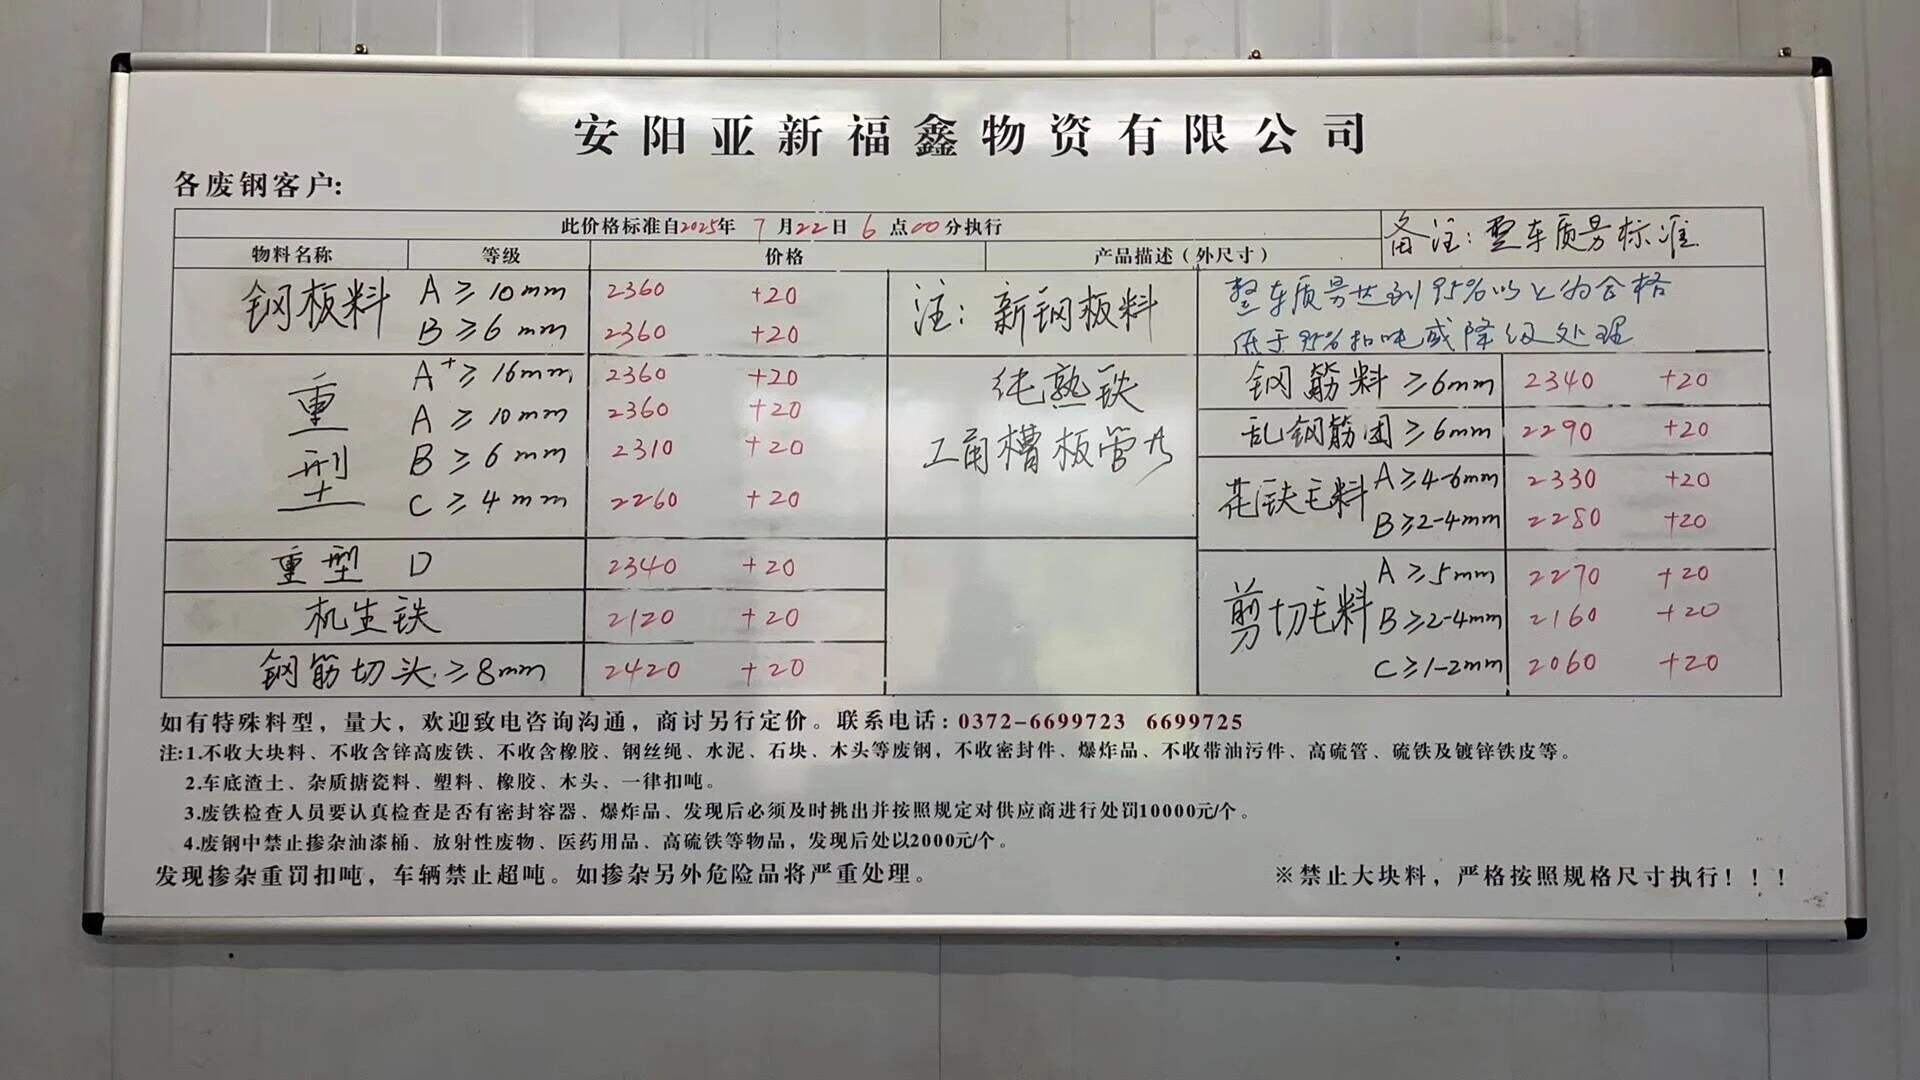 安阳亚新福鑫物资有限公司
各废钢客户:
此价格标准自2025年 7 月22日 6 点00分执行
备注: 整车质量标准
物料名称 等级 价格 产品描述（外尺寸）
钢板料 A ≥ 10mm 2360 +20
B ≥ 6 mm 2360 +20
重型 A+ ≥ 16mm 2360 +20
A ≥ 10mm 2360 +20
B ≥ 6 mm 2310 +20
C ≥ 4 mm 2260 +20
重型 D 2340 +20
机生铁 2120 +20
钢筋切头 ≥8mm 2420 +20
注: 新钢板料
纯熟铁
工角槽板管
整车质量达到95%以上为合格
低于95%扣吨或降级处理
钢筋料 ≥6mm 2340 +20
乱钢筋团≥6mm 2290 +20
花铁毛料 A≥4-6mm 2330 +20
B≥2-4mm 2280 +20
剪切毛料 A ≥5mm 2270 +20
B≥2-4mm 2160 +20
C≥1-2mm 2060 +20
如有特殊料型，量大，欢迎致电咨询沟通，商讨另行定价。联系电话: 0372-6699723 6699725
注:1.不收大块料、不收含锌高废铁、不收含橡胶、钢丝绳、水泥、石块、木头等废钢，不收密封件、爆炸品、不收带油污件、高硫管、硫铁及镀锌铁皮等。
2.车底渣土、杂质搪瓷料、塑料、橡胶、木头、一律扣吨。
3.废铁检查人员要认真检查是否有密封容器、爆炸品、发现后必须及时挑出并按照规定对供应商进行处罚10000元/个。
4.废钢中禁止掺杂油漆桶、放射性废物、医药用品、高硫铁等物品，发现后处以2000元/个。
发现掺杂重罚扣吨，车辆禁止超吨。如掺杂另外危险品将严重处理。
※禁止大块料，严格按照规格尺寸执行！！！